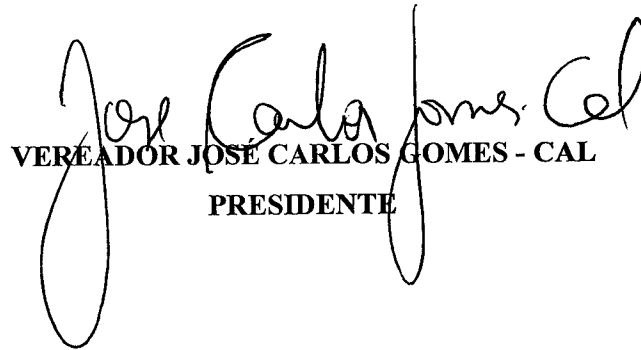 Jose Carlos Gomes - Cal
VEREADOR JOSÉ CARLOS GOMES - CAL
PRESIDENTE